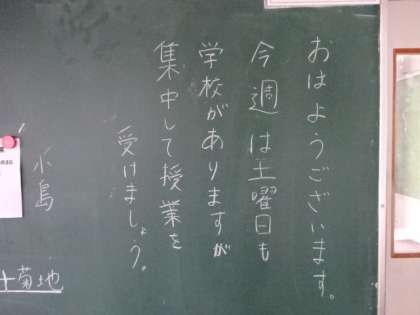 おはようございます。
今週は土曜日も
学校がありますが
集中して授業を
受けましょう。
小島
十菊地